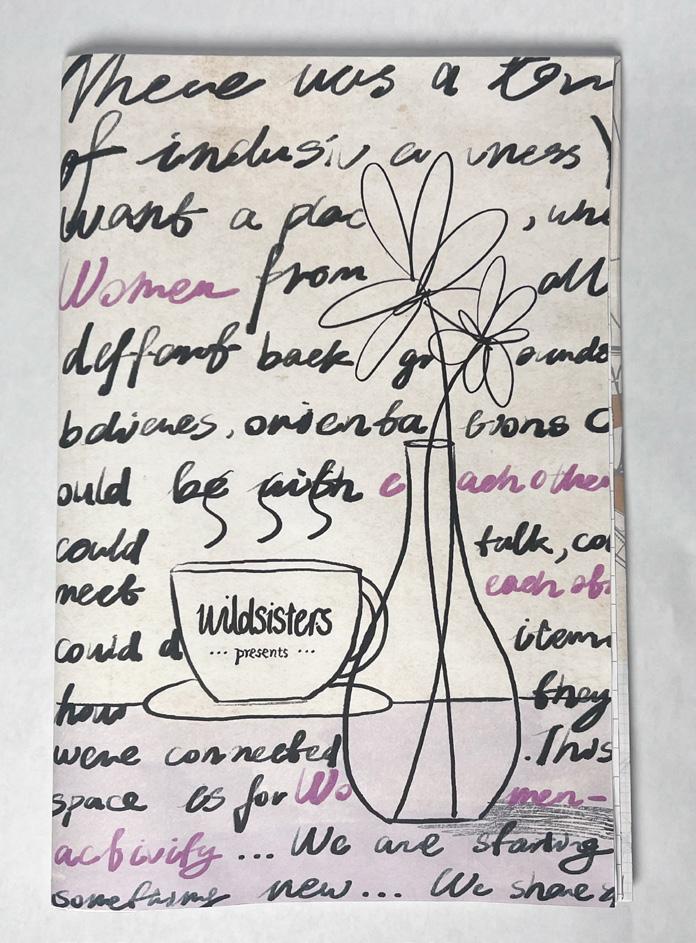 There was a
of inclusiv
want a plac
Women from all
deffornt back gr ounds
orienta tions
ould be with each other
could talk, co
meet each oth
could d item
how they
were connected .This
space is for Wo men-
activity ... We are starting
something new ... We share
wildsisters
... presents ...